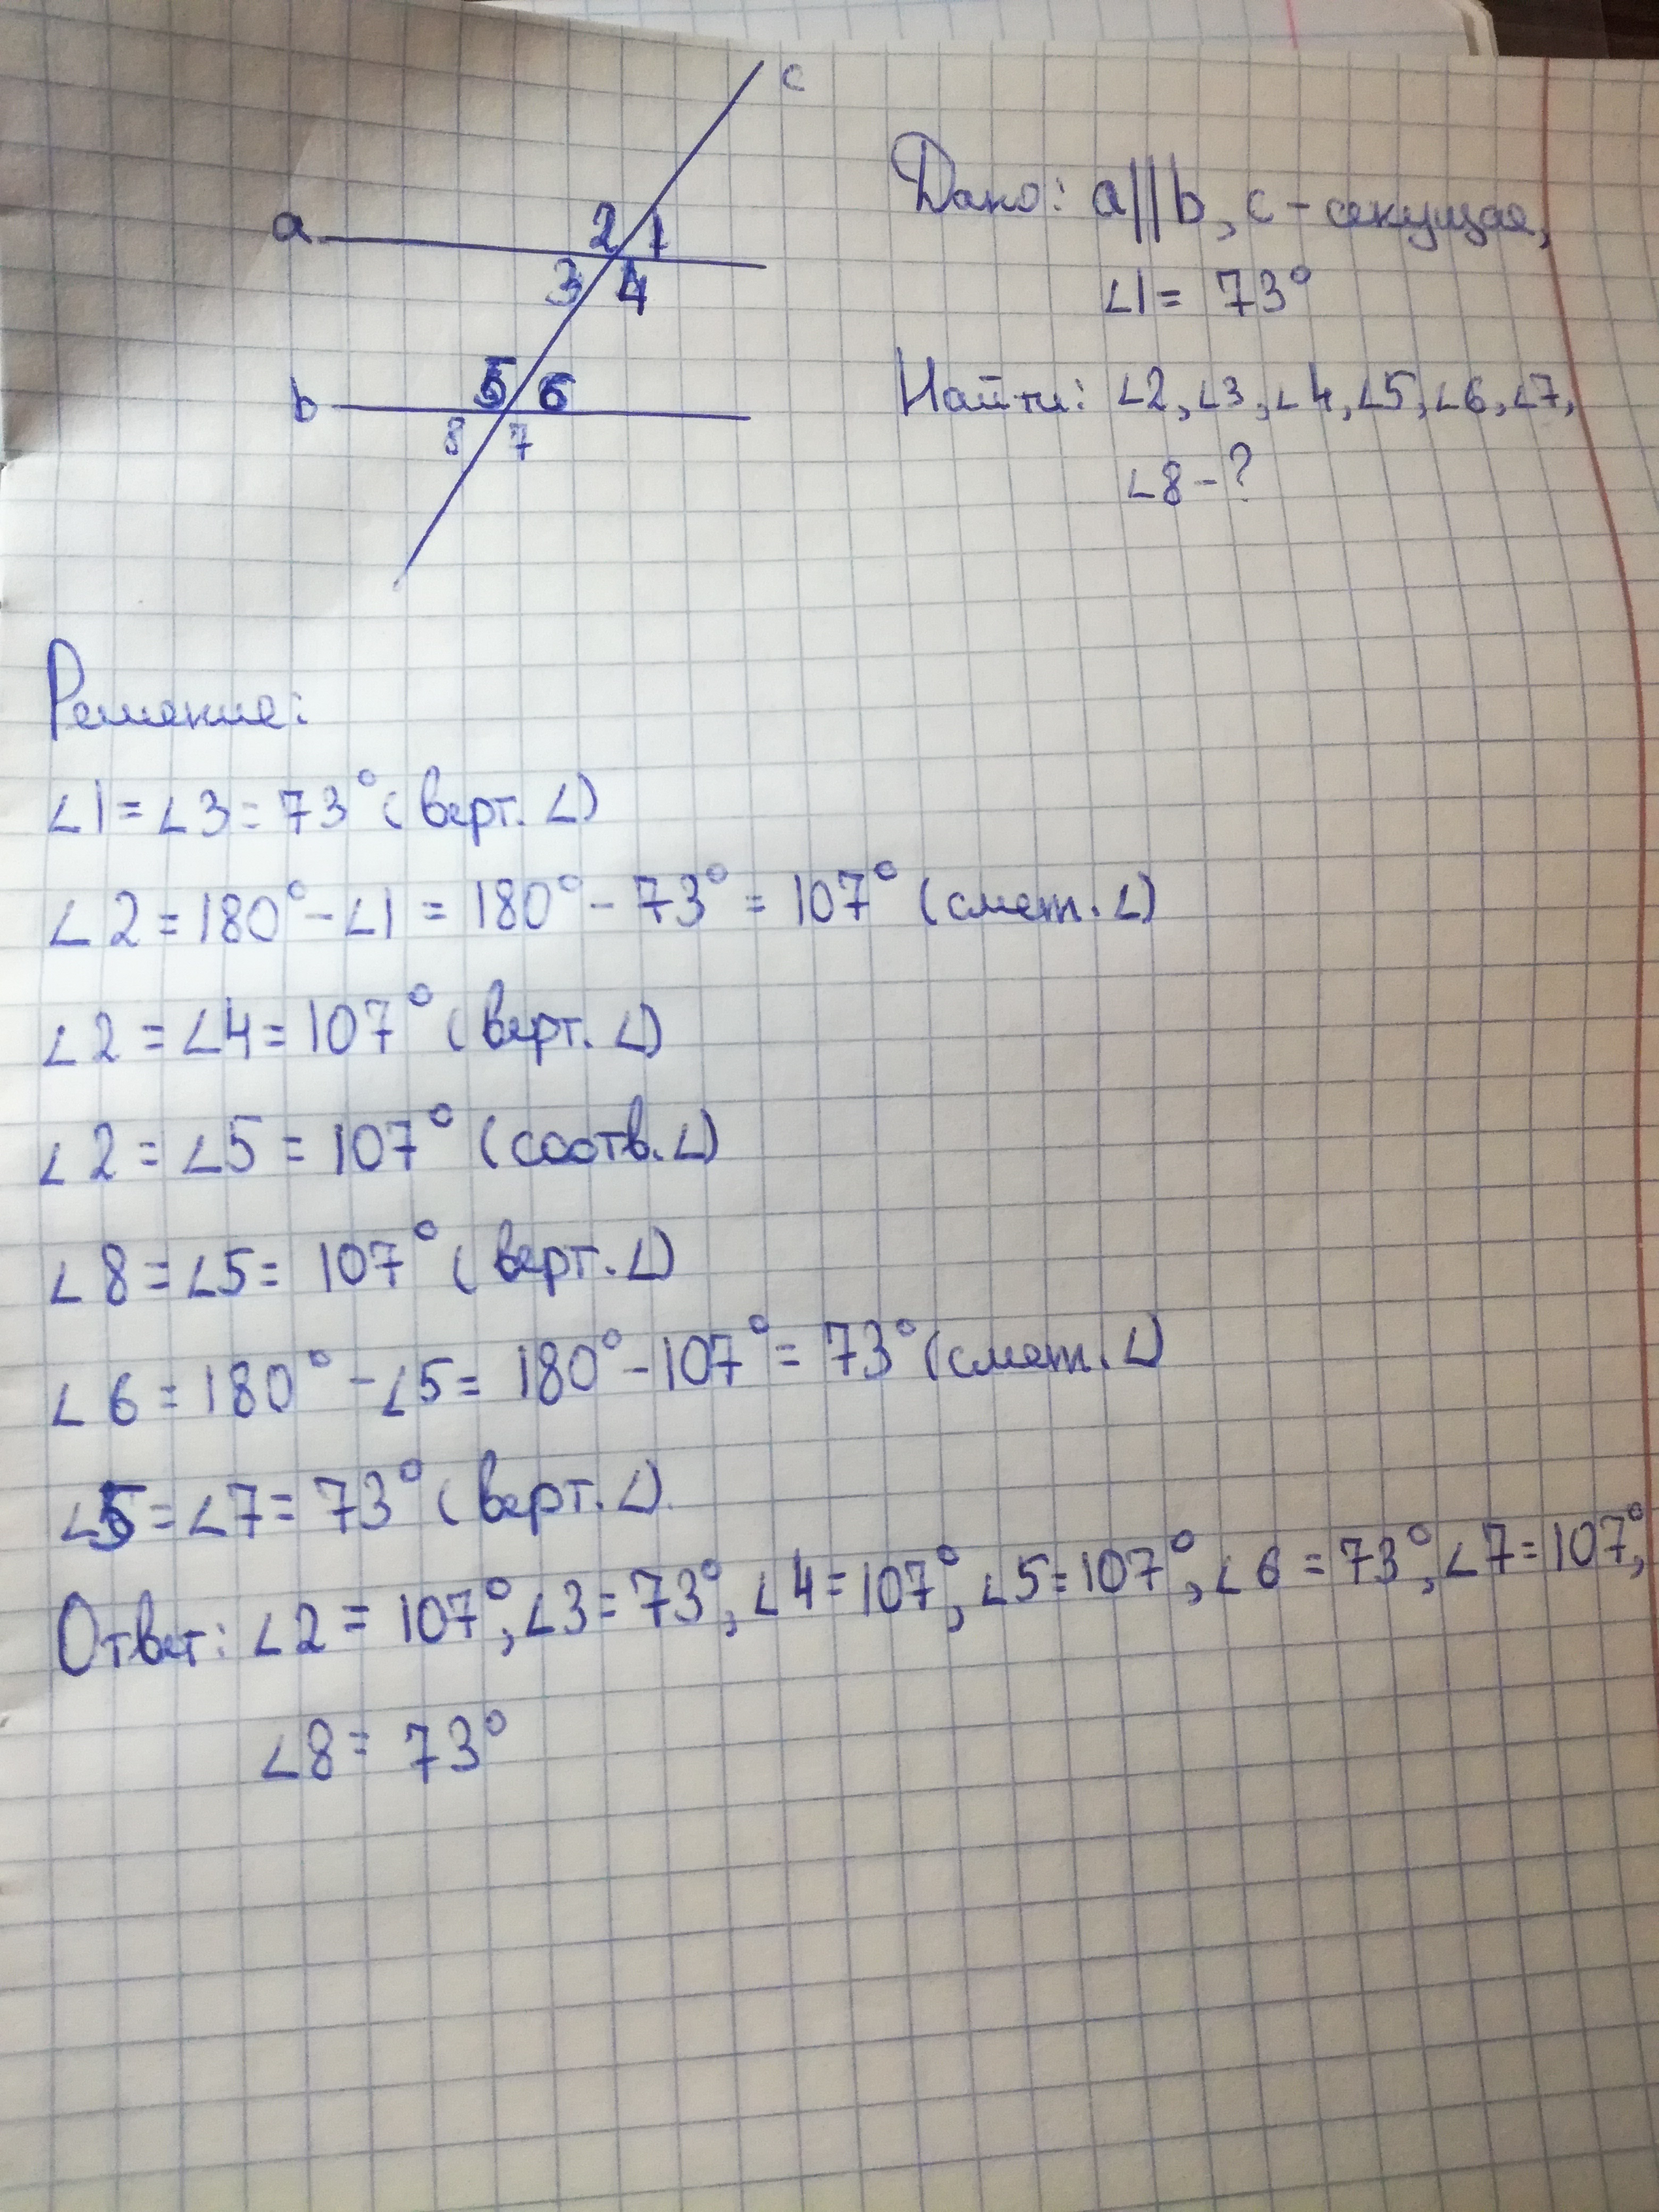 c
a 2 1
3 4
b 5 6
8 7
Дано: a||b, c - секущая,
∠1 = 73°
Найти: ∠2, ∠3, ∠4, ∠5, ∠6, ∠7,
∠8 - ?
Решение:
∠1 = ∠3 = 73° (верт. ∠)
∠2 = 180° - ∠1 = 180° - 73° = 107° (смеж. ∠)
∠2 = ∠4 = 107° (верт. ∠)
∠2 = ∠5 = 107° (соотв. ∠)
∠8 = ∠5 = 107° (верт. ∠)
∠6 = 180° - ∠5 = 180° - 107° = 73° (смеж. ∠)
∠5 = ∠7 = 73° (верт. ∠).
Ответ: ∠2 = 107°, ∠3 = 73°, ∠4 = 107°, ∠5 = 107°, ∠6 = 73°, ∠7 = 107°,
∠8 = 73°